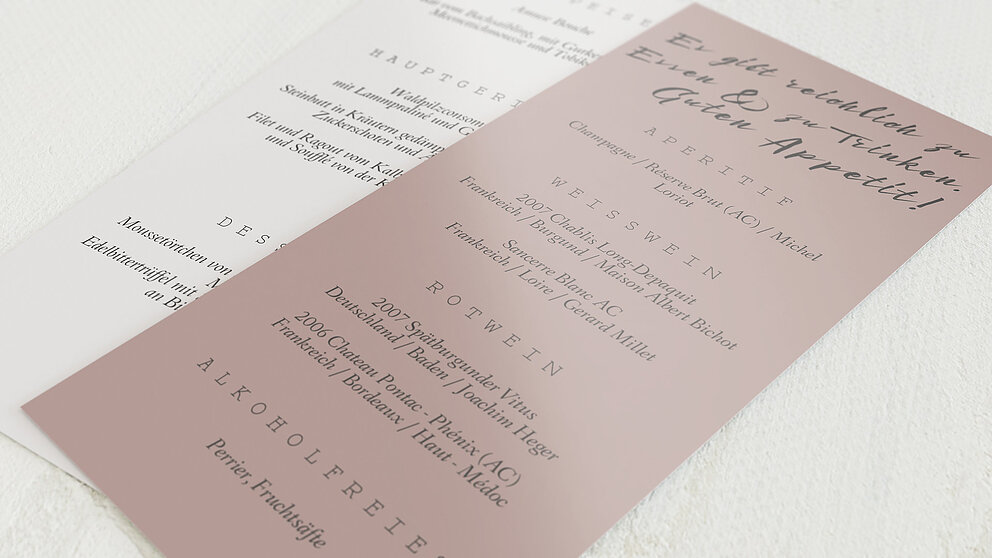 Es gibt reichlich zu
Essen & zu Trinken.
Guten Appetit!
APERITIF
Champagne / Réserve Brut (AC) / Michel
Loriot
WEISSWEIN
2007 Chablis Long-Depaquit
Frankreich / Burgund / Maison Albert Bichot
Sancerre Blanc AC
Frankreich / Loire / Gerard Millet
ROTWEIN
2007 Spätburgunder Vitus
Deutschland / Baden / Joachim Heger
2006 Chateau Pontac - Phénix (AC)
Frankreich / Bordeaux / Haut - Médoc
ALKOHOLFREIES
Perrier, Fruchtsäfte
Amuse Bouche
vom Bachsaibling, mit
Meerrettichmousse und
HAUPTGERI
Waldpilzconsom
mit Lammpraliné und
Steinbutt in Kräutern gedämp
Zuckerschoten und
Filet und Ragout vom Kalb
und Soufflé von der K
DESS
Moussetörtchen von
Edelbittertrüffel mit
an Bi